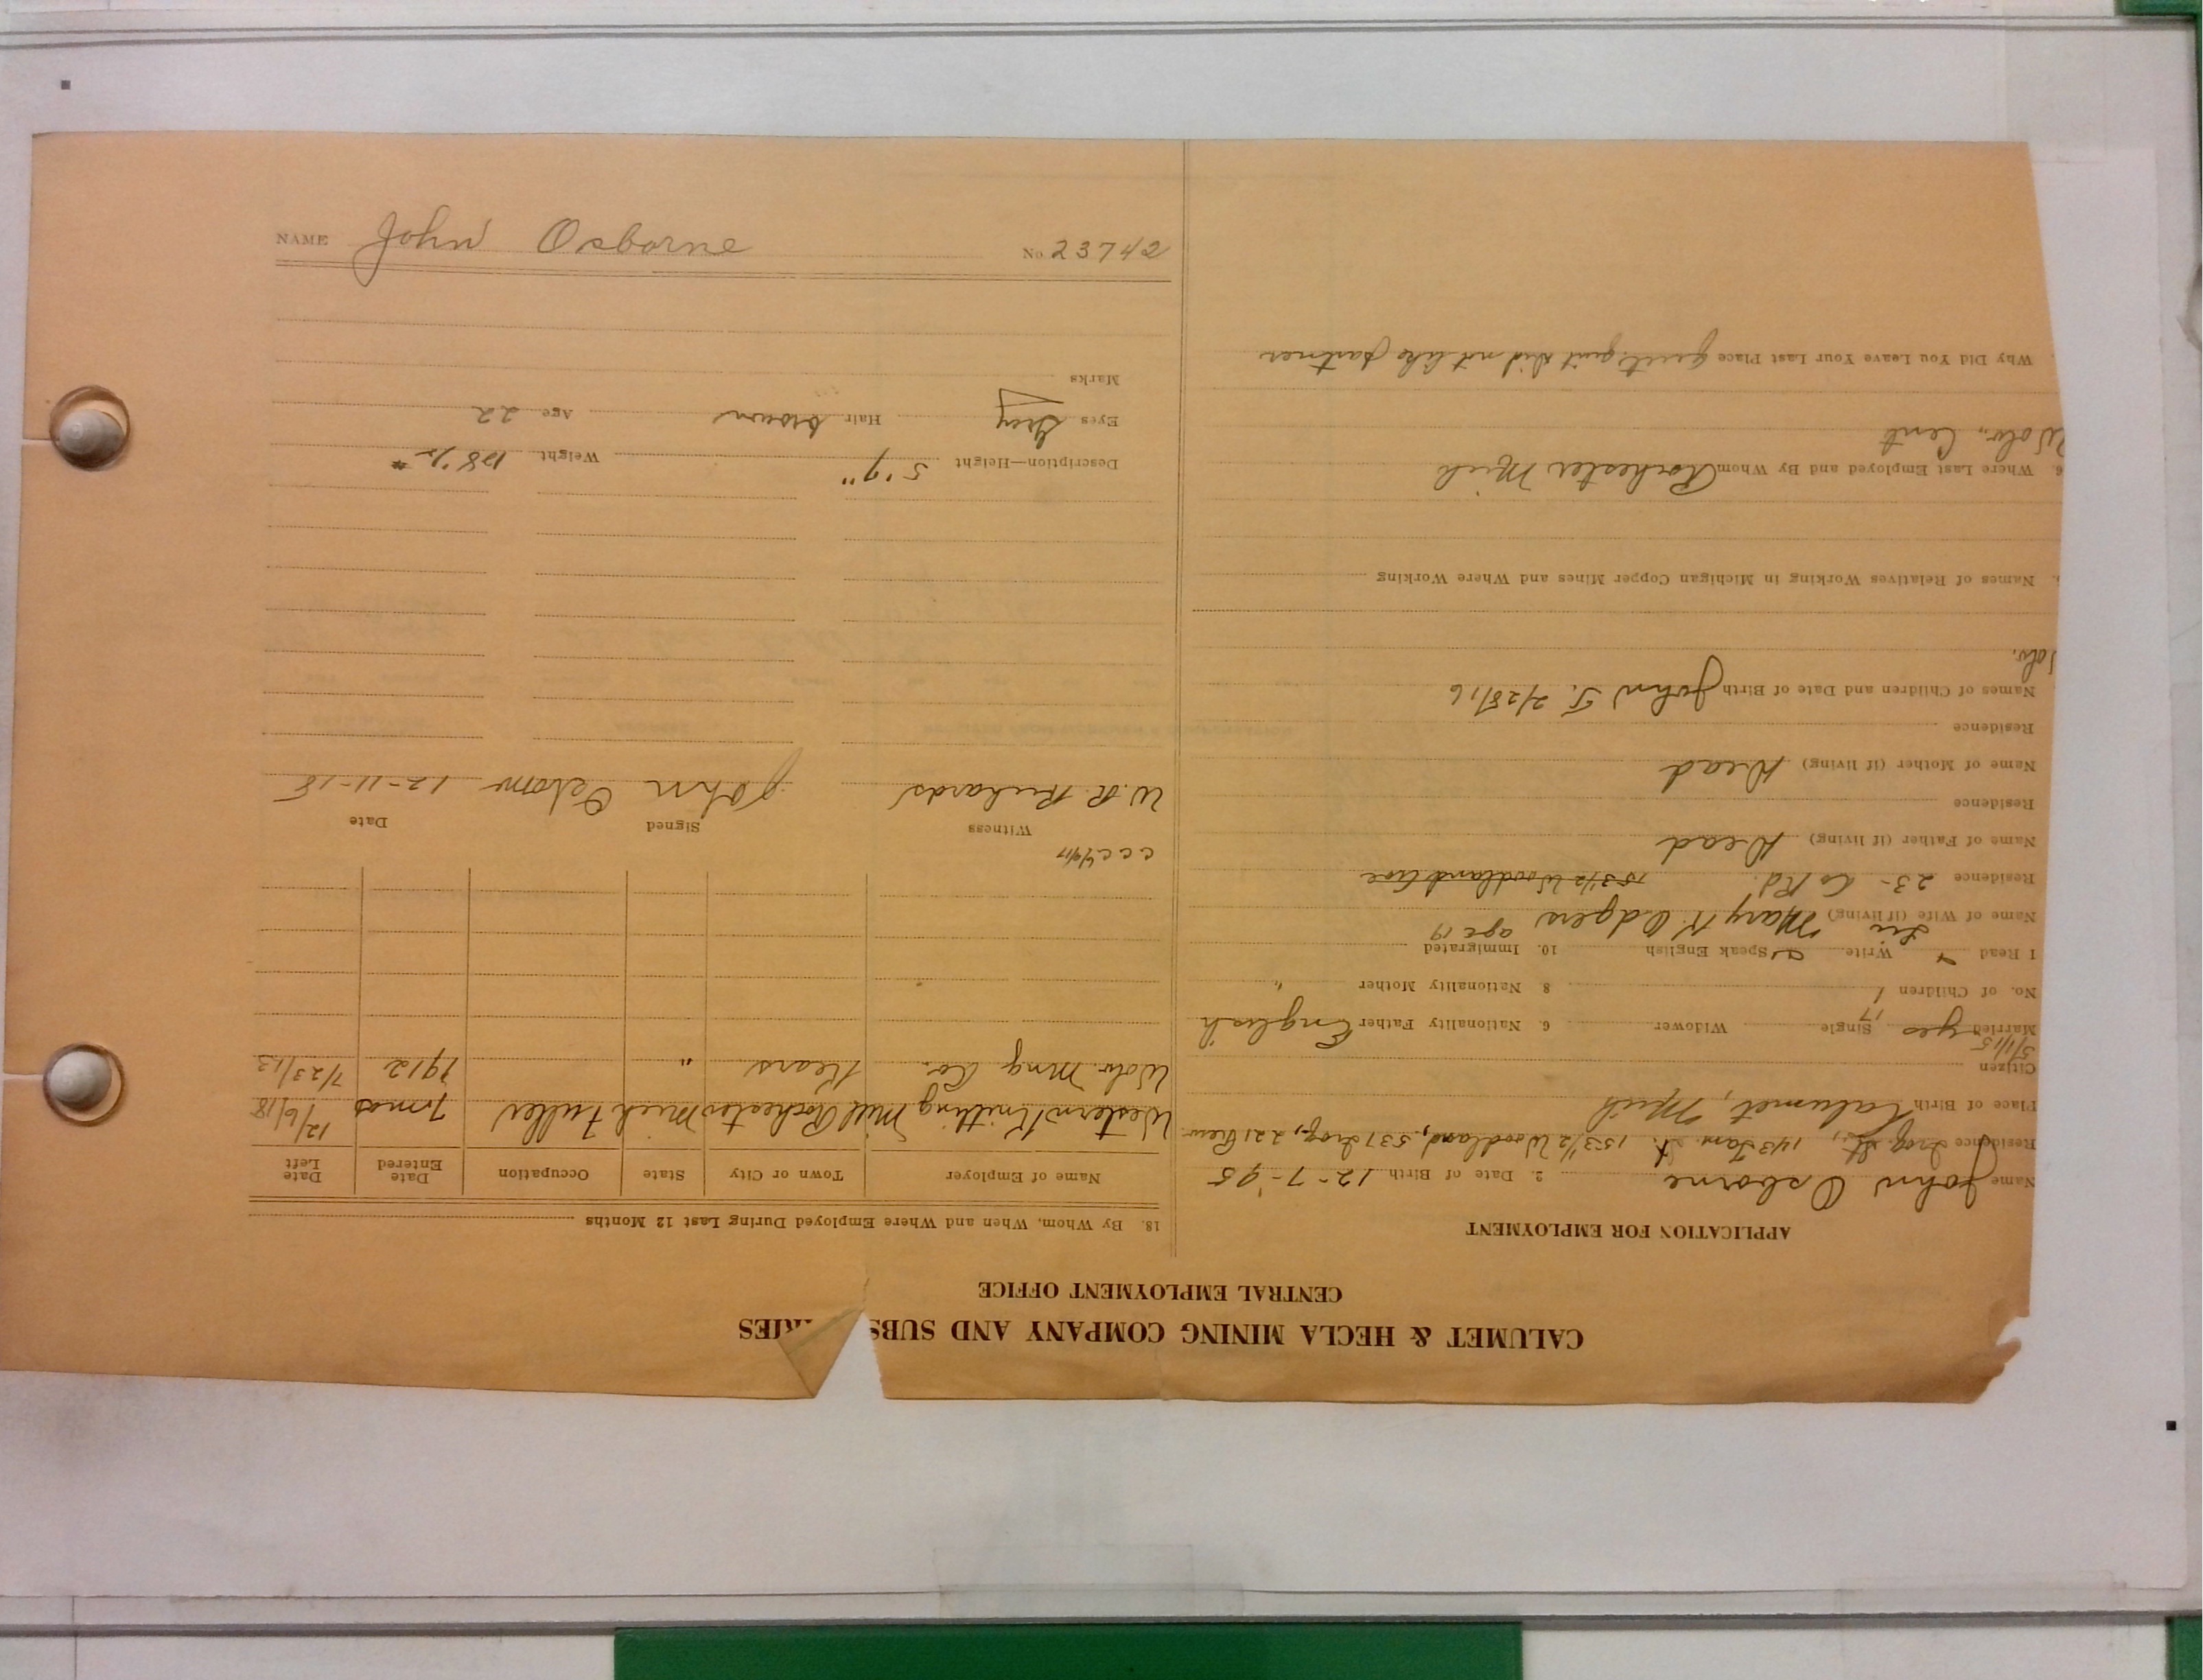 NAME John Osborne No 23742
CALUMET & HECLA MINING COMPANY AND SUBS RIES
CENTRAL EMPLOYMENT OFFICE
APPLICATION FOR EMPLOYMENT
Name John Osborne 2. Date of Birth 12-7-95
Residence Iroq. St., 143 Tam St. 153 1/2 Woodland, 531 Iroq, 221
Place of Birth Calumet, Mich
Citizen
5/1/15
Married yes Single Widower 6. Nationality Father English
17
No. of Children 1 8 Nationality Mother "
I Read Write Speak English 10. Immigrated
Name of Wife (if living) Mary K. Odgers age 19
Residence 23- Co Rd. 153 1/2 Woodland Ave
Name of Father (if living) Dead
Residence
Name of Mother (if living) Dead
Residence
Names of Children and Date of Birth John T. 2/28/16
Names of Relatives Working in Michigan Copper Mines and Where Working
6. Where Last Employed and By Whom Rochester Mich
Wolv., Cent
Why Did You Leave Your Last Place quit did not like partner
18. By Whom, When and Where Employed During Last 12 Months
Name of Employer Town or City State Occupation Date Entered Date Left
Western Knitting Mill Rochester Mich Fuller 7 mos 12/6/18
Wolv. Mng Co. Kears " 1912 7/23/13
Witness Signed Date
W. R. Richards John Osborne 12-11-18
Description—Height 5'7" Weight
Eyes Gray Hair brown Age 22
Marks